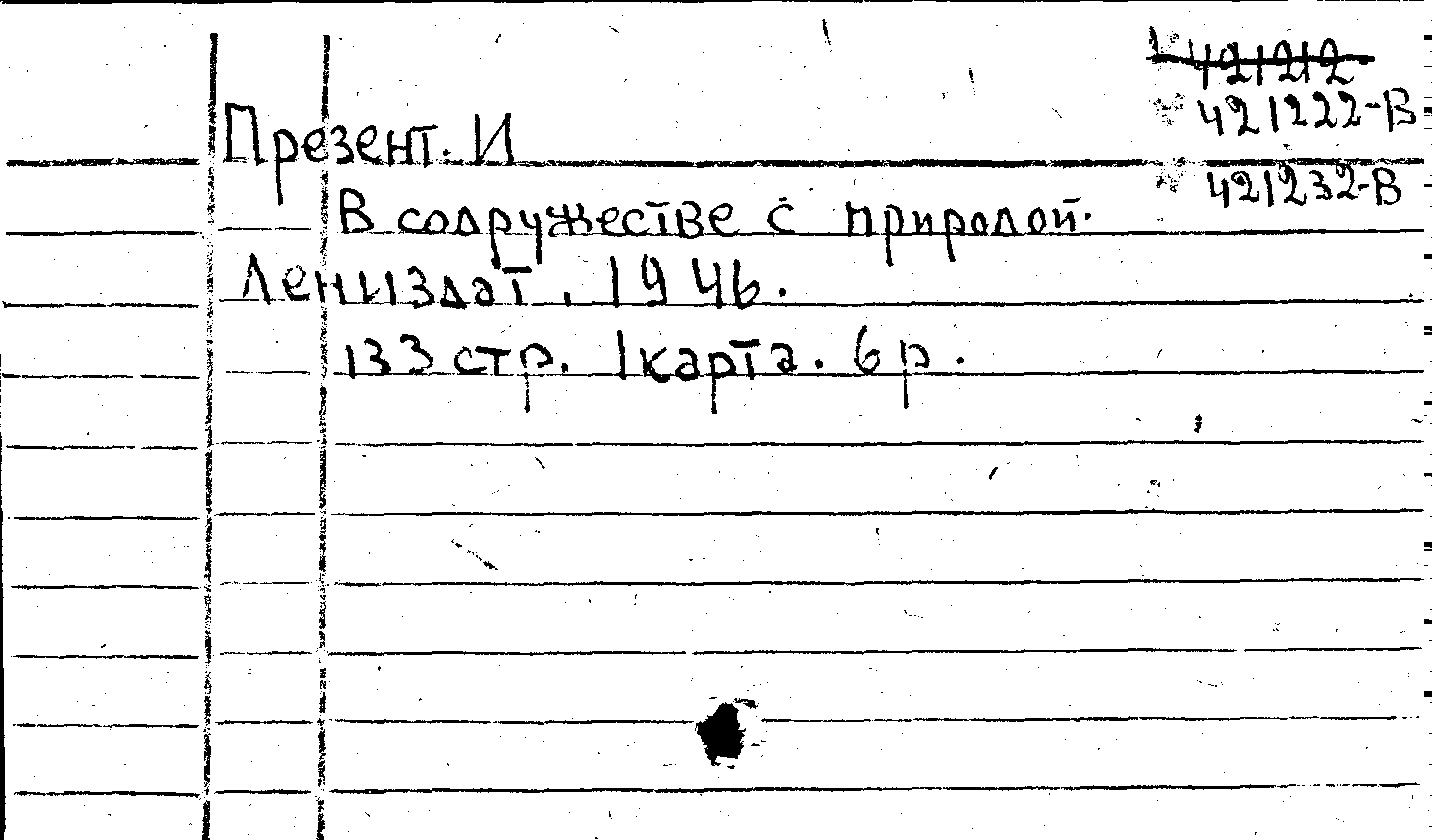 421212
421222-В
Презент. И
421232-В
В содружестве с природой.
Лениздат. 1946.
133 стр. 1 карта. 6 р.